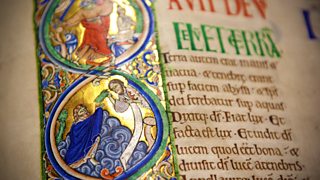 AVIT DEV
CELŪ ET TERRĀ
Terra autem erat inanis et
vacua. & tenebre erant
sup faciem abyssi. & sp̄c
dei ferebatur sup aquas
Dixitq; ds̄. Fiat lux. Et
facta est lux. Et vidit ds̄
lucem quod eēt bona. &
divisit ds̄ lucē a tenebris